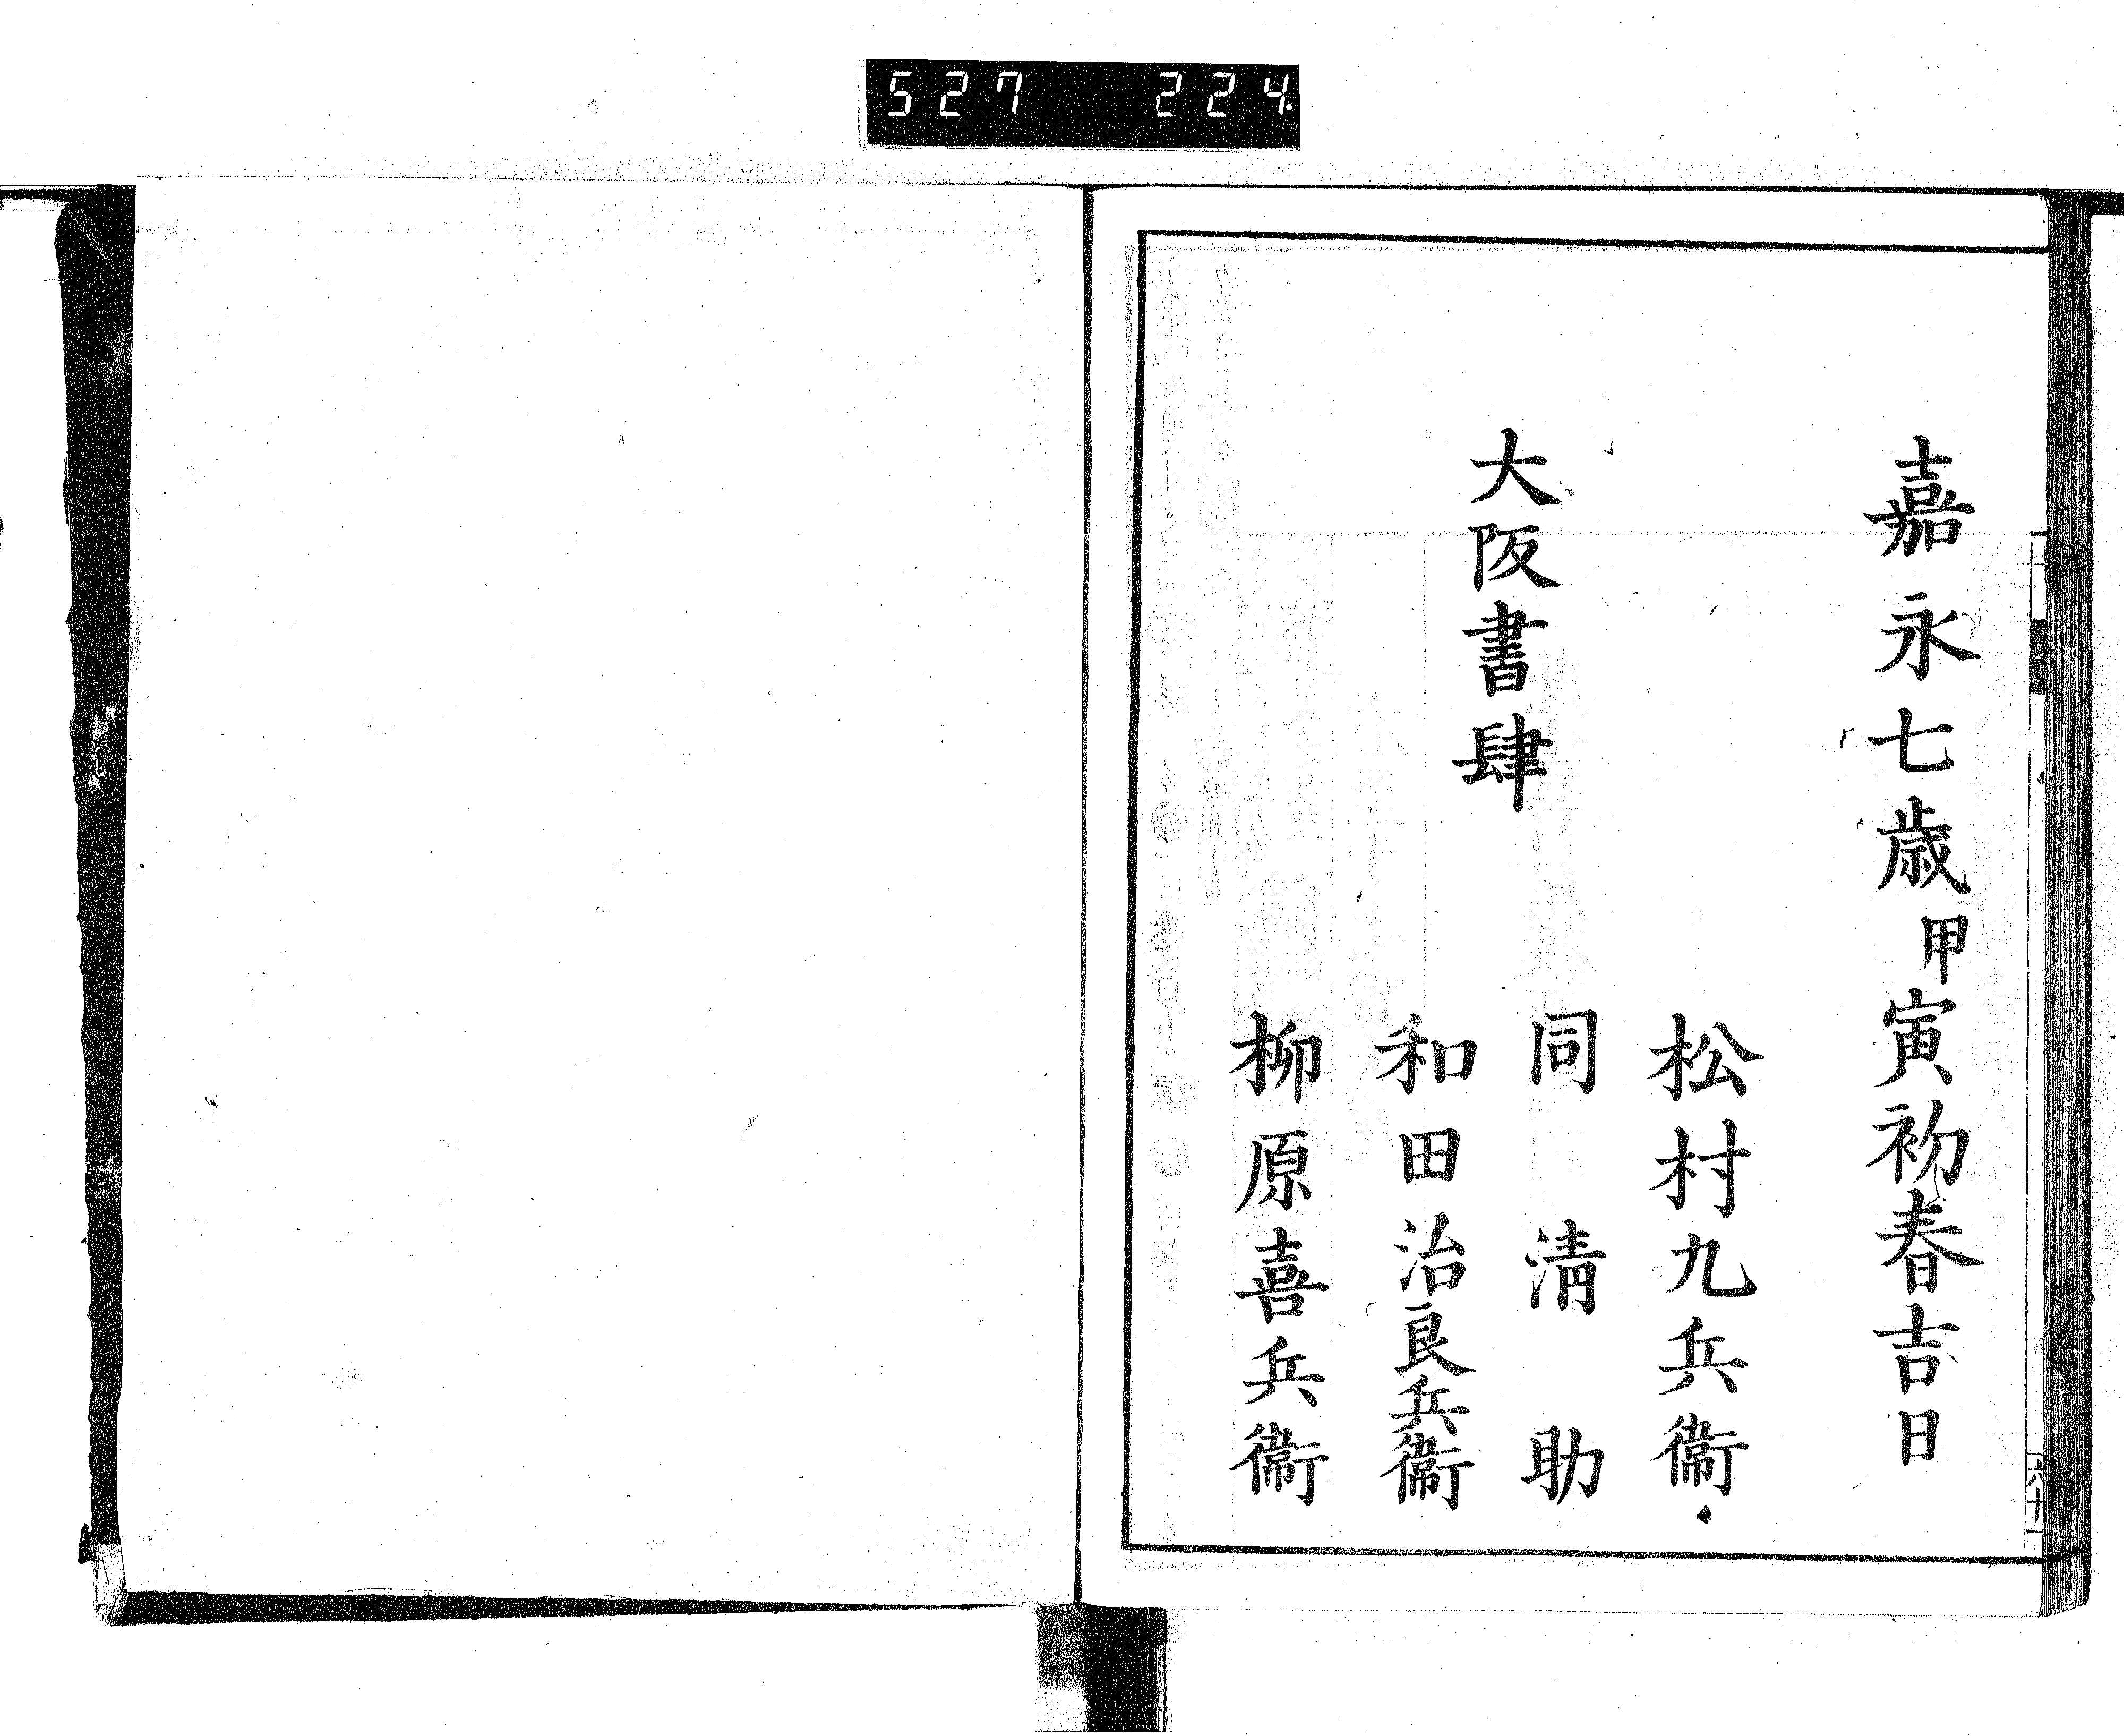 527 224
嘉永七歳甲寅初春吉日
大阪書肆
松村九兵衞
同清助
和田治良兵衞
柳原喜兵衞
六十